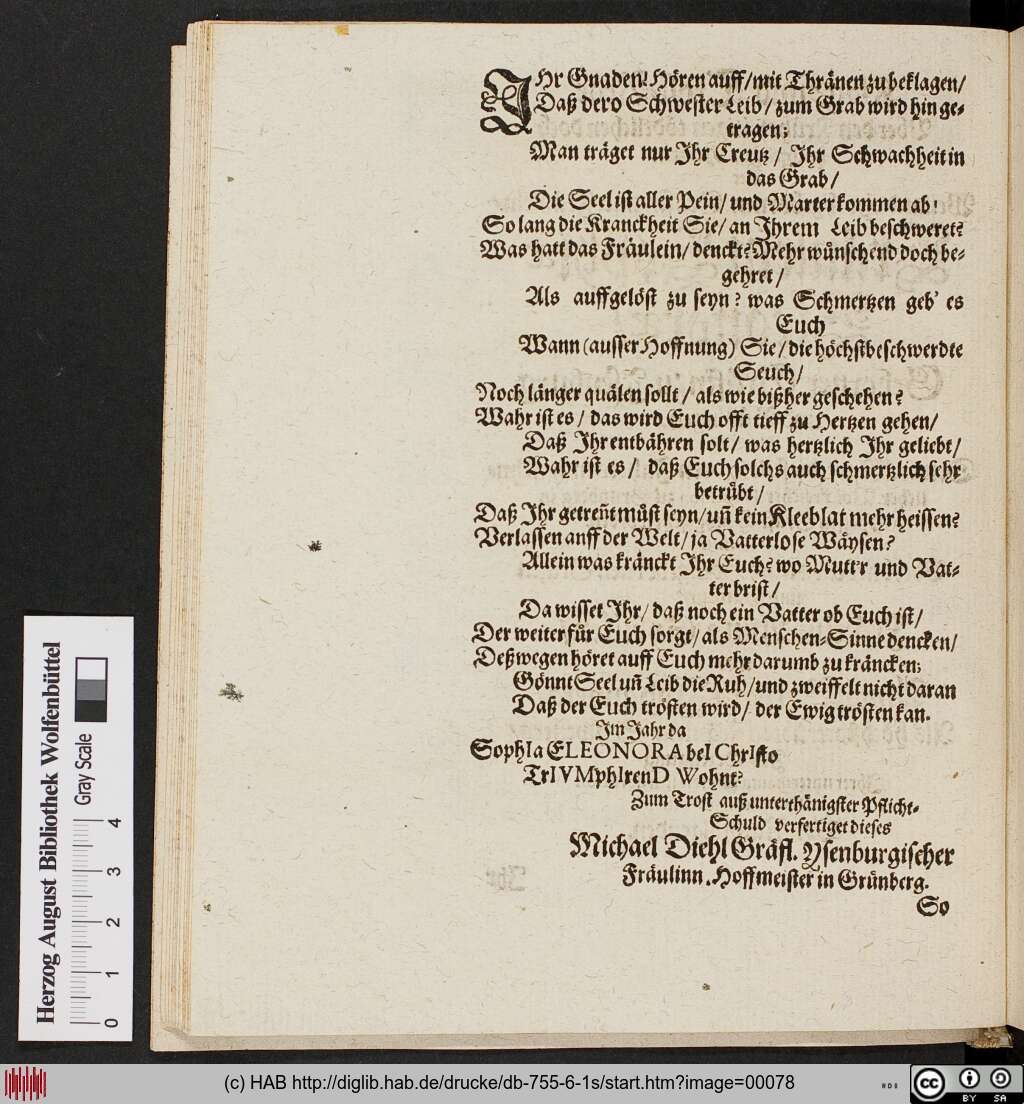 IHr Gnaden! Hören auff/ mit Thränen zu beklagen/
Daß dero Schwester Leib/ zum Grab wird hin ge-
tragen;
Man träget nur Ihr Creutz/ Ihr Schwachheit in
das Grab/
Die Seel ist aller Pein/ und Marter kommen ab!
So lang die Kranckheit Sie/ an Ihrem Leib beschweret?
Was hatt das Fräulein/ denckt? Mehr wůnschend doch be-
gehret/
Als auffgelöst zu seyn? was Schmertzen geb' es
Euch
Wann (ausser Hoffnung) Sie/ die höchstbeschwerdte
Seuch/
Noch länger quälen sollt/ als wie bißher geschehen?
Wahr ist es/ das wird Euch offt tieff zu Hertzen gehen/
Daß Ihr entbähren solt/ was hertzlich Ihr geliebt/
Wahr ist es/ daß Euch solchs auch schmertzlich sehr
betrůbt/
Daß Ihr getreñt můst seyn/ uñ kein Kleeblat mehr heissen?
Verlassen anff der Welt/ ja Vatterlose Wäysen?
Allein was kränckt Ihr Euch? wo Mutt'r und Vat-
ter brist/
Da wisset Ihr/ daß noch ein Vatter ob Euch ist/
Der weiter fůr Euch sorgt/ als Menschen-Sinne dencken/
Deßwegen höret auff Euch mehr darumb zu kräncken;
Gönnt Seel uñ Leib die Ruh/ und zweiffelt nicht daran
Daß der Euch trösten wird/ der Ewig trösten kan.
Im Jahr da
SophIa ELEONORA beI ChrIsto
TrIVMphIrenD Wohnt?
Zum Trost auß unterthänigster Pflicht-
Schuld verfertiget dieses
Michael Diehl Gräfl. Ysenburgischer
Fräulinn. Hoffmeister in Grünberg.
So
Herzog August Bibliothek Wolfenbüttel
Gray Scale
0 1 2 3 4
(c) HAB http://diglib.hab.de/drucke/db-755-6-1s/start.htm?image=00078
cc BY SA